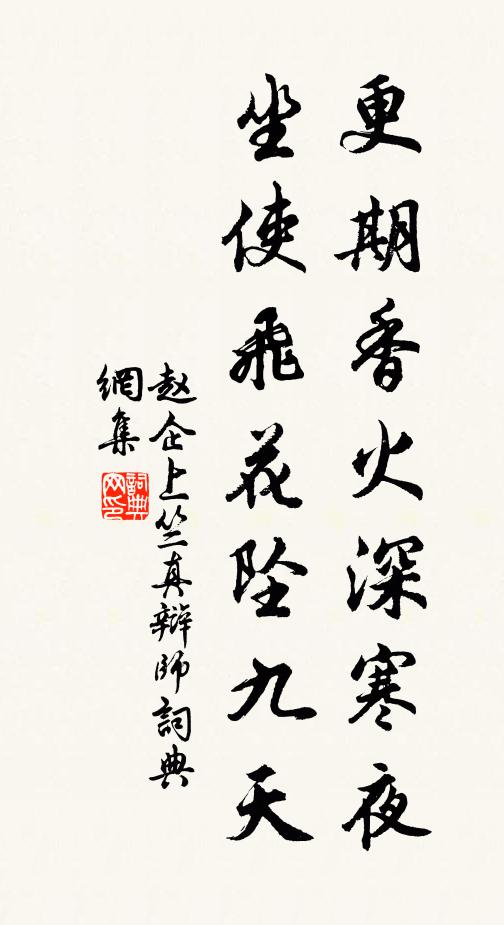 更期香火深寒夜
坐使飛花坠九天
赵企上竺真辯師詞典
網集
詞典
网印